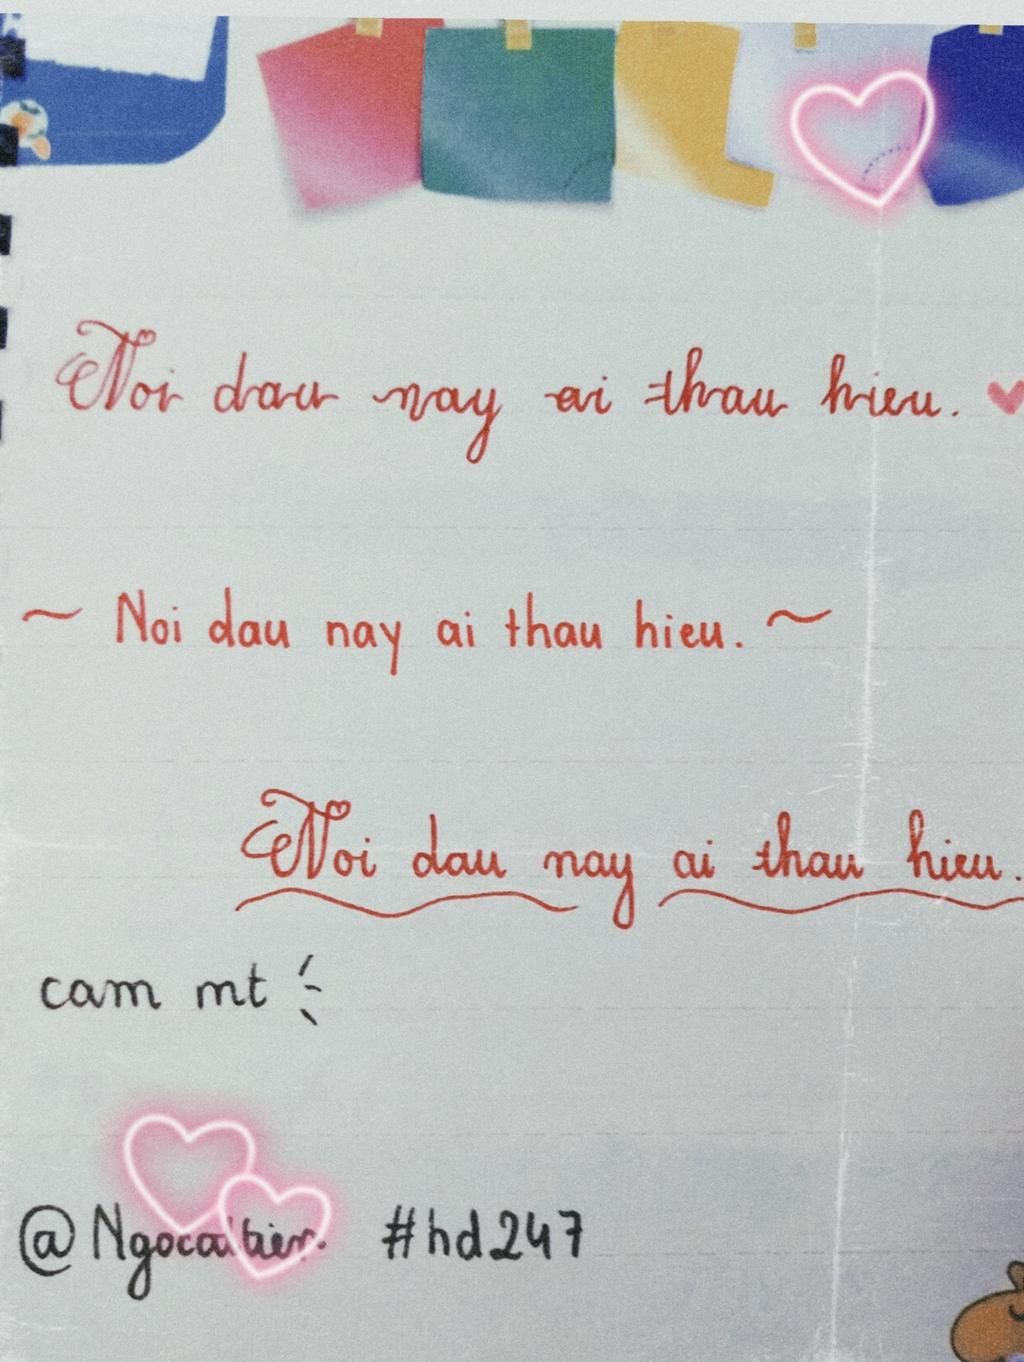 Noi dau nay ai thau hieu.
~ Noi dau nay ai thau hieu. ~
Noi dau nay ai thau hieu.
cam mt
#hd247